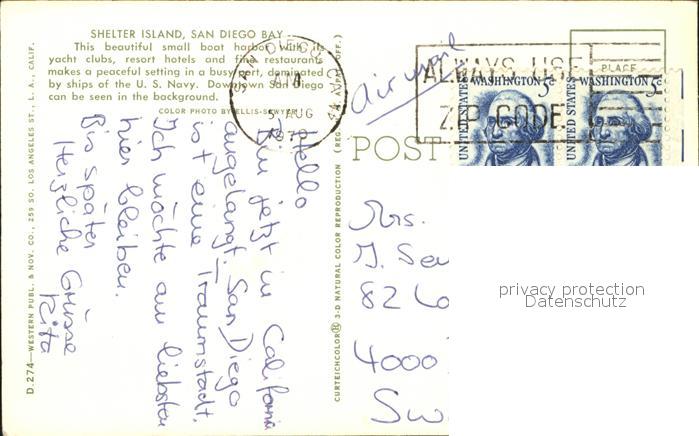 SHELTER ISLAND, SAN DIEGO BAY
This beautiful small boat harbor with its
yacht clubs, resort hotels and fine restaurants
makes a peaceful setting in a busy port, dominated
by ships of the U. S. Navy. Downtown San Diego
can be seen in the background.
COLOR PHOTO BY ELLIS-SAWYER
Hello
Bin jetzt in California
angelangt. San Diego
ist eine Traumstadt.
Ich möchte am liebsten
hier bleiben.
Bis später
Herzliche Grüsse
Rita
D.274—WESTERN PUBL. & NOV. CO., 259 SO. LOS ANGELES ST., L. A., CALIF.
CURTEICHCOLOR® 3-D NATURAL COLOR REPRODUCTION (REG. U.S.A. PAT. OFF.)
SAN DIEGO CA
AM
5 AUG
197
air mail
ALWAYS USE
ZIP CODE
PLACE
WASHINGTON 5c
UNITED STATES
WASHINGTON 5c
UNITED STATES
POST
Mrs.
J.
82
4000
Sw
privacy protection
Datenschutz